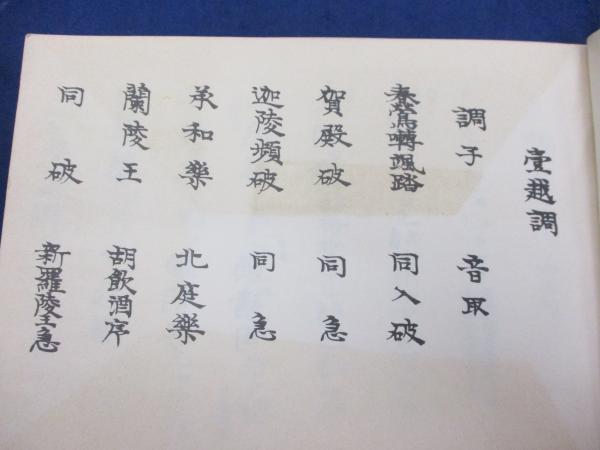 壹越調
調子 音取
春鶯囀颯踏 同入破
賀殿破 同急
迦陵頻破 同急
承和樂 北庭樂
蘭陵王 胡飲酒序
同破 新羅陵王急